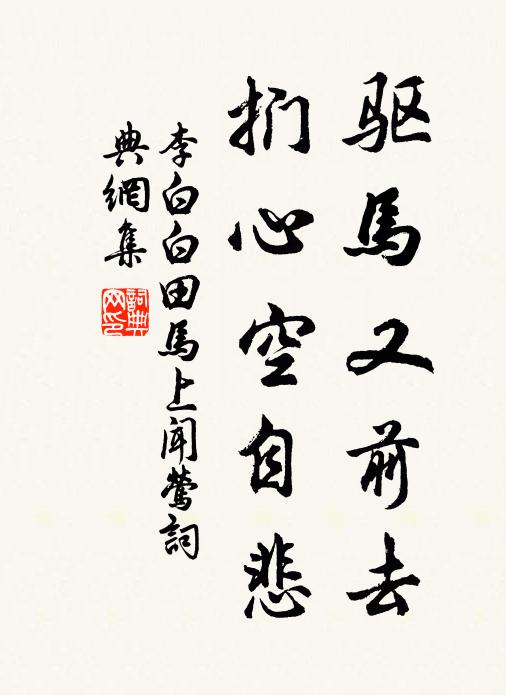 驱馬又前去
捫心空自悲
李白白田馬上闻鶯詞
典網集
詞典
网印